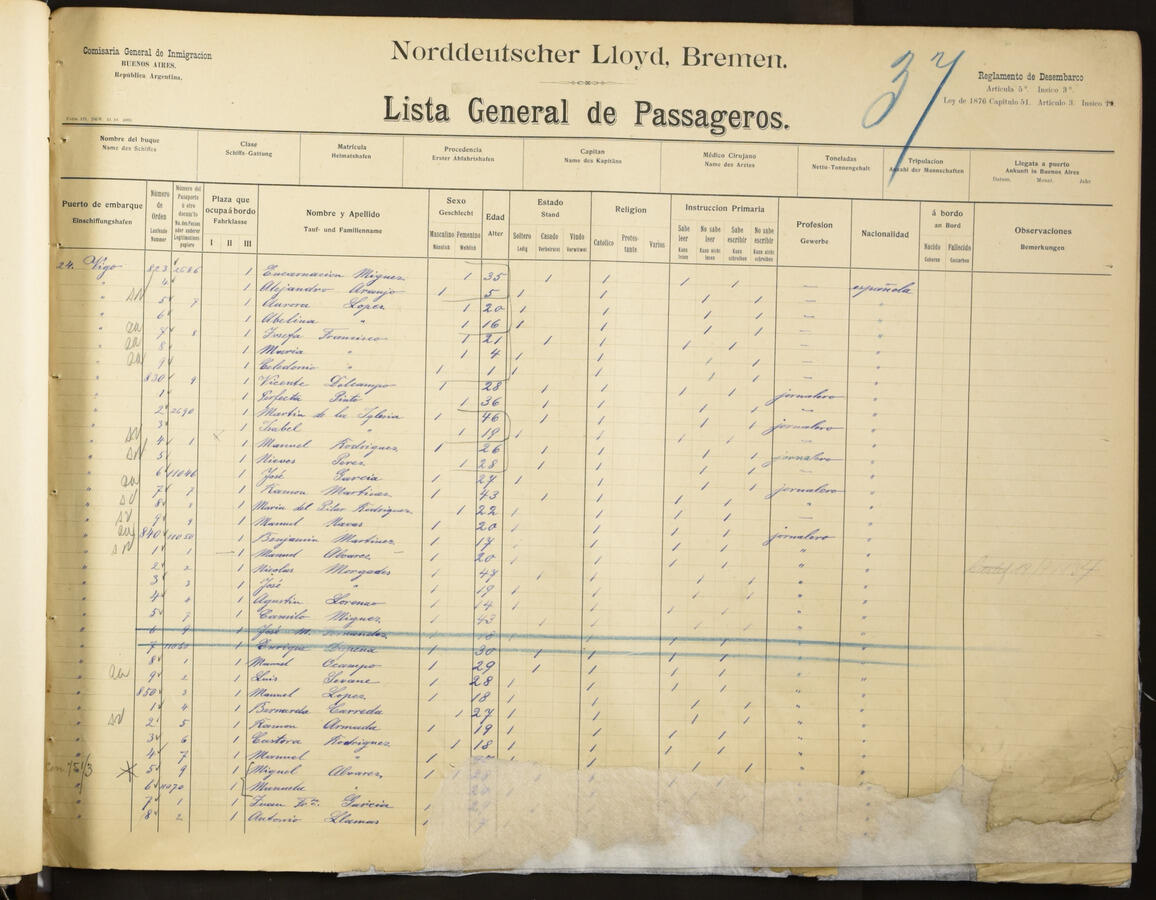 Comisaria General de Inmigracion
BUENOS AIRES.
República Argentina.
Norddeutscher Lloyd, Bremen.
Lista General de Passageros.
37
Reglamento de Desembarco
Artícula 5º. Insico 3º.
Ley de 1876 Capitulo 51. Artículo 3. Insico
Nombre del buque Clase Matrícula Procedencia Capitan Médico Cirujano Toneladas Tripulacion Llegata a puerto
Name des Schiffes Schiffs-Gattung Heimatshafen Erster Abfahrtshafen Name des Kapitäns Name des Arztes Netto-Tonnengehalt Anzahl der Mannschaften Ankunft in Buenos Aires
Datum. Monat. Jahr
Puerto de embarque Número de Orden Plaza que ocupa á bordo Nombre y Apellido Sexo Edad Estado Religion Instruccion Primaria Profesion Nacionalidad á bordo Observaciones
Einschiffungshafen Laufende Nummer Fahrklasse Tauf- und Familienname Geschlecht Alter Stand Gewerbe an Bord Bemerkungen
I II III Masculino Femenino Soltero Casado Viudo Catolico Protestante Varios Sabe leer No sabe leer Sabe escribir No sabe escribir Nacido Fallecido
Männlich Weiblich Ledig Verheiratet Verwitwet Kann lesen Kann nicht lesen Kann schreiben Kann nicht schreiben Geboren Gestorben
24. Vigo 823 2686 1 Encarnacion Miguez 1 35 1 1 1 1 —
" 4 1 Alejandro Araujo 1 5 1 1 española
" 5 7 1 Aurora Lopez 1 20 1 1 1 1 — "
" 6 1 Abelina " 1 16 1 1 1 1 — "
" 7 8 1 Josefa Francisco 1 21 1 1 1 1 — "
" 8 1 Maria " 1 4 1 "
" 9 1 Celedonio " 1 1 1 1 1 1 — "
" 830 9 1 Vicente Dolcampo 1 28 1 1 1 1 jornalero "
" 1 1 Perfecta Pinto 1 36 1 1 1 1 — "
" 2 2690 1 Martin de la Iglesia 1 46 1 1 1 1 jornalero "
" 3 1 Isabel " 1 19 1 1 1 1 — "
" 4 1 1 Manuel Rodriguez 1 26 1 1 1 1 jornalero "
" 5 1 Nieves Perez 1 28 1 1 1 1 — "
" 6 11046 1 José Garcia 1 27 1 1 1 1 jornalero "
" 7 7 1 Ramon Martinez 1 43 1 1 1 1 " "
" 8 1 Maria del Pilar Rodriguez 1 22 1 1 1 1 — "
" 9 9 1 Manuel Navas 1 20 1 1 1 1 jornalero "
" 840 11050 1 Benjamin Martinez 1 17 1 1 1 " "
" 1 1 1 Manuel Alvarez 1 20 1 1 1 " "
" 2 2 1 Nicolas Morgades 1 47 1 1 1 1 " "
" 3 3 1 José " 1 19 1 1 1 1 " "
" 4 4 1 Agustin Lorenzo 1 14 1 1 1 1 " "
" 5 7 1 Camilo Miguez 1 43 1 1 1 1 " "
" 6 9 1 José M. Fernandez 1 18 " "
" 7 1 Enrique Dopena 1 30 1 1 1 1 " "
" 8 1 1 Manuel Ocampo 1 29 1 1 1 1 " "
" 9 2 1 Luis Seoane 1 28 1 1 1 1 " "
" 850 3 1 Manuel Lopez 1 18 1 1 1 1 " "
" 1 4 1 Bernarda Carreda 1 27 1 1 1 1 " "
" 2 5 1 Ramon Armada 1 19 1 1 1 1 " "
" 3 6 1 Castora Rodriguez 1 18 1 1 1 1 " "
" 4 7 1 Manuel " 1
" 5 9 1 Miguel Alvarez 1
" 6 11070 1 Manuela "
" 7 1 1 Juan Garcia 1
" 8 2 1 Antonio Llamas 1